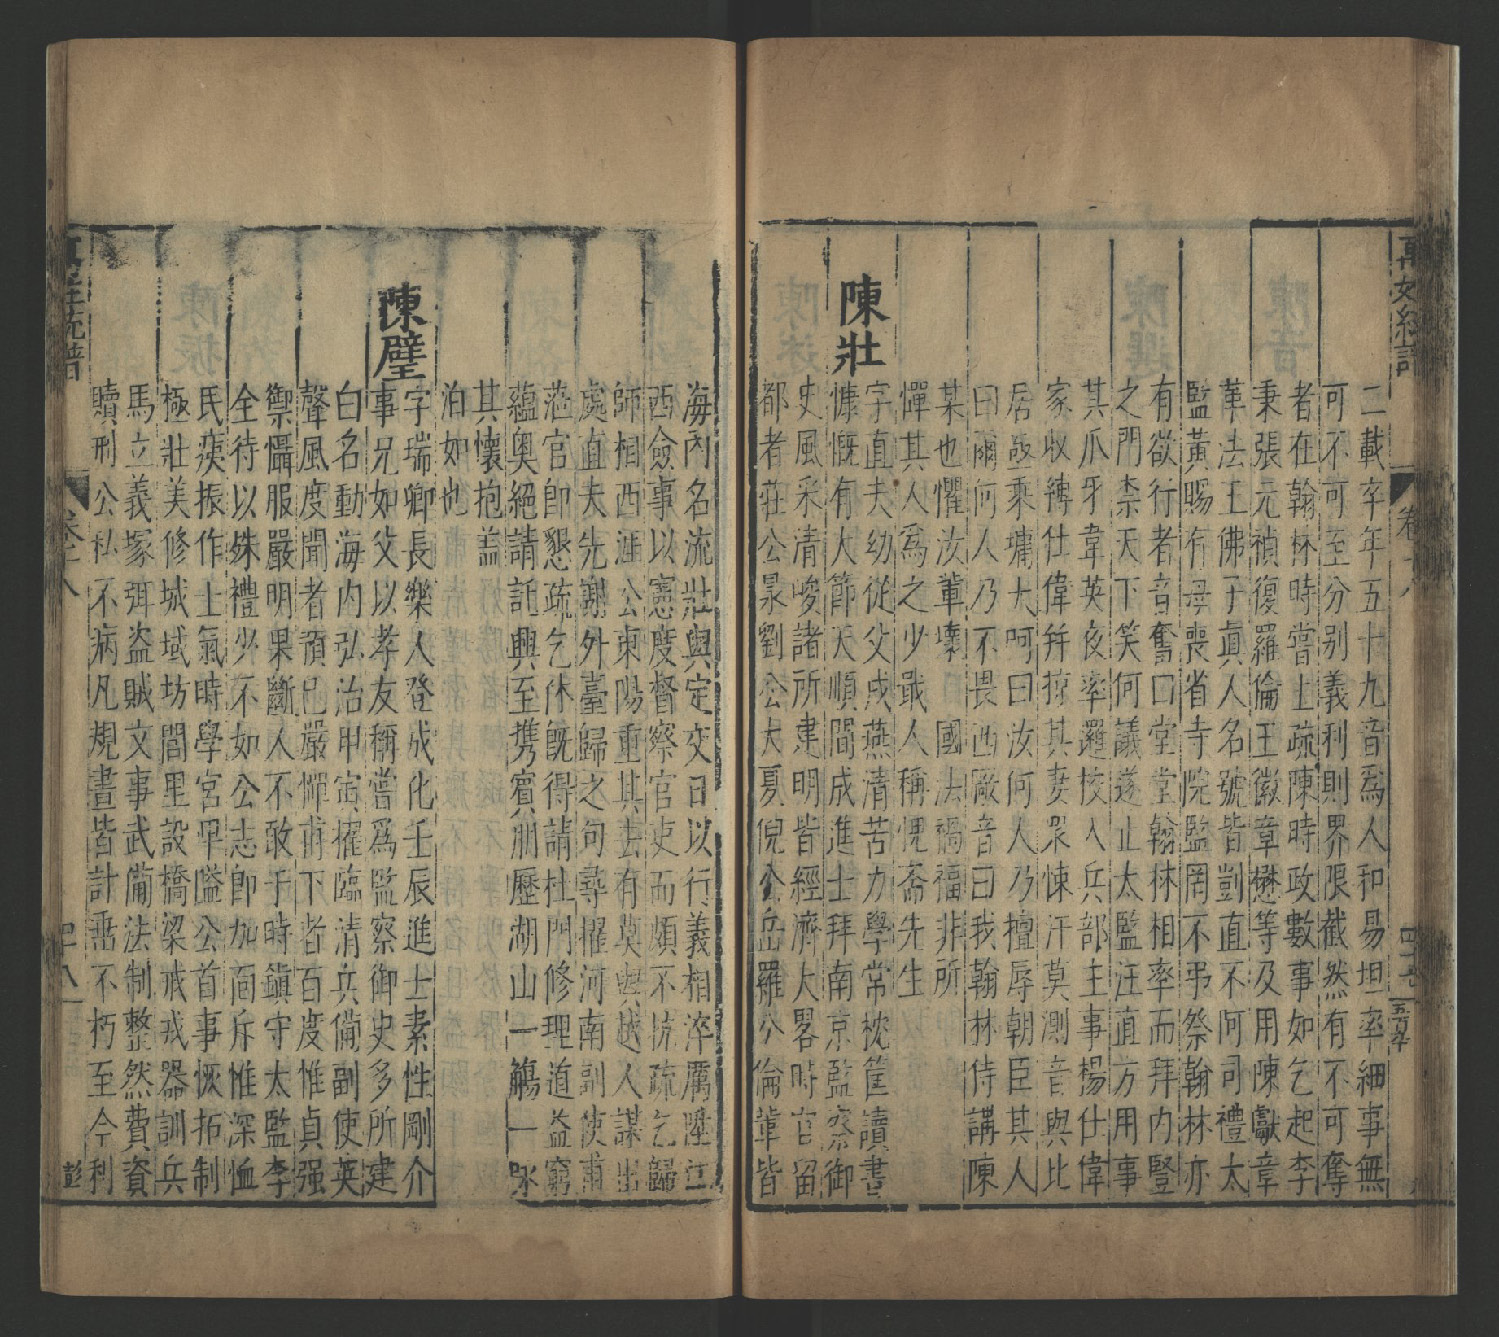 二載卒年五十九音為人和易坦率細事無
可不可至分别義利則界限截然有不可奪
者在翰林時嘗上疏陳時政數事如乞起李
秉張元禎復羅倫王徽章懋等及用陳獻章
革法王佛子眞人名號皆剴直不阿司禮太
監黃賜有母喪省寺院監罔不弔祭翰林亦
有欲行者音奮曰堂堂翰林相率而拜内豎
之門柰天下笑何議遂止太監汪直方用事
其爪牙韋英夜率邏校入兵部主事楊仕偉
家收縛仕偉并掠其妻衆悚汗莫測音與比
居亟乘墉大呵曰汝何人乃擅辱朝臣其人
曰爾何人乃不畏西廠音曰我翰林侍講陳
某也懼汝輩壞 國法禍福非所
憚其人爲之少戢人稱愧齋先生
陳壯
字直夫幼從父戍燕清苦力學常枕筐讀書
慷慨有大節天順間成進士拜南京監察御
史風采清峻諸所建明皆經濟大畧時官留
都者莊公㫤劉公大夏倪公岳羅公倫輩皆
海内名流壯與定交日以行義相淬厲陞江
西僉事以憲度督察官吏而頗不 疏乞歸
師相西涯公東陽重其去有莫與越人謀出
處直夫先謝外臺歸之句尋擢河南副使甫
涖官即懇疏乞休既得請杜門修理道益窮
蘊奥絕請託興至携賓朋歷湖山一觴一咏
其懷抱盖
泊如也
陳璧
字瑞卿長樂人登成化壬辰進士素性剛介
事兄如父以孝友稱嘗爲監察御史多所建
白名動海内弘治甲寅擢臨清兵備副使英
聲風度聞者 巳嚴憚甫下者百度惟貞强
禦懾服嚴明果斷人不敢于時鎮守太監李
全待以姝禮少不如公志卽加面斥惟深恤
民瘼振作士氣時學宮卑隘公首事恢拓制
極壯美修城域坊閭里設橋梁戒戎器訓兵
馬立義塚弭盗賊文事武備法制整然費資
贖刑公私不病凡規畫皆計垂不朽至今利
卷十八